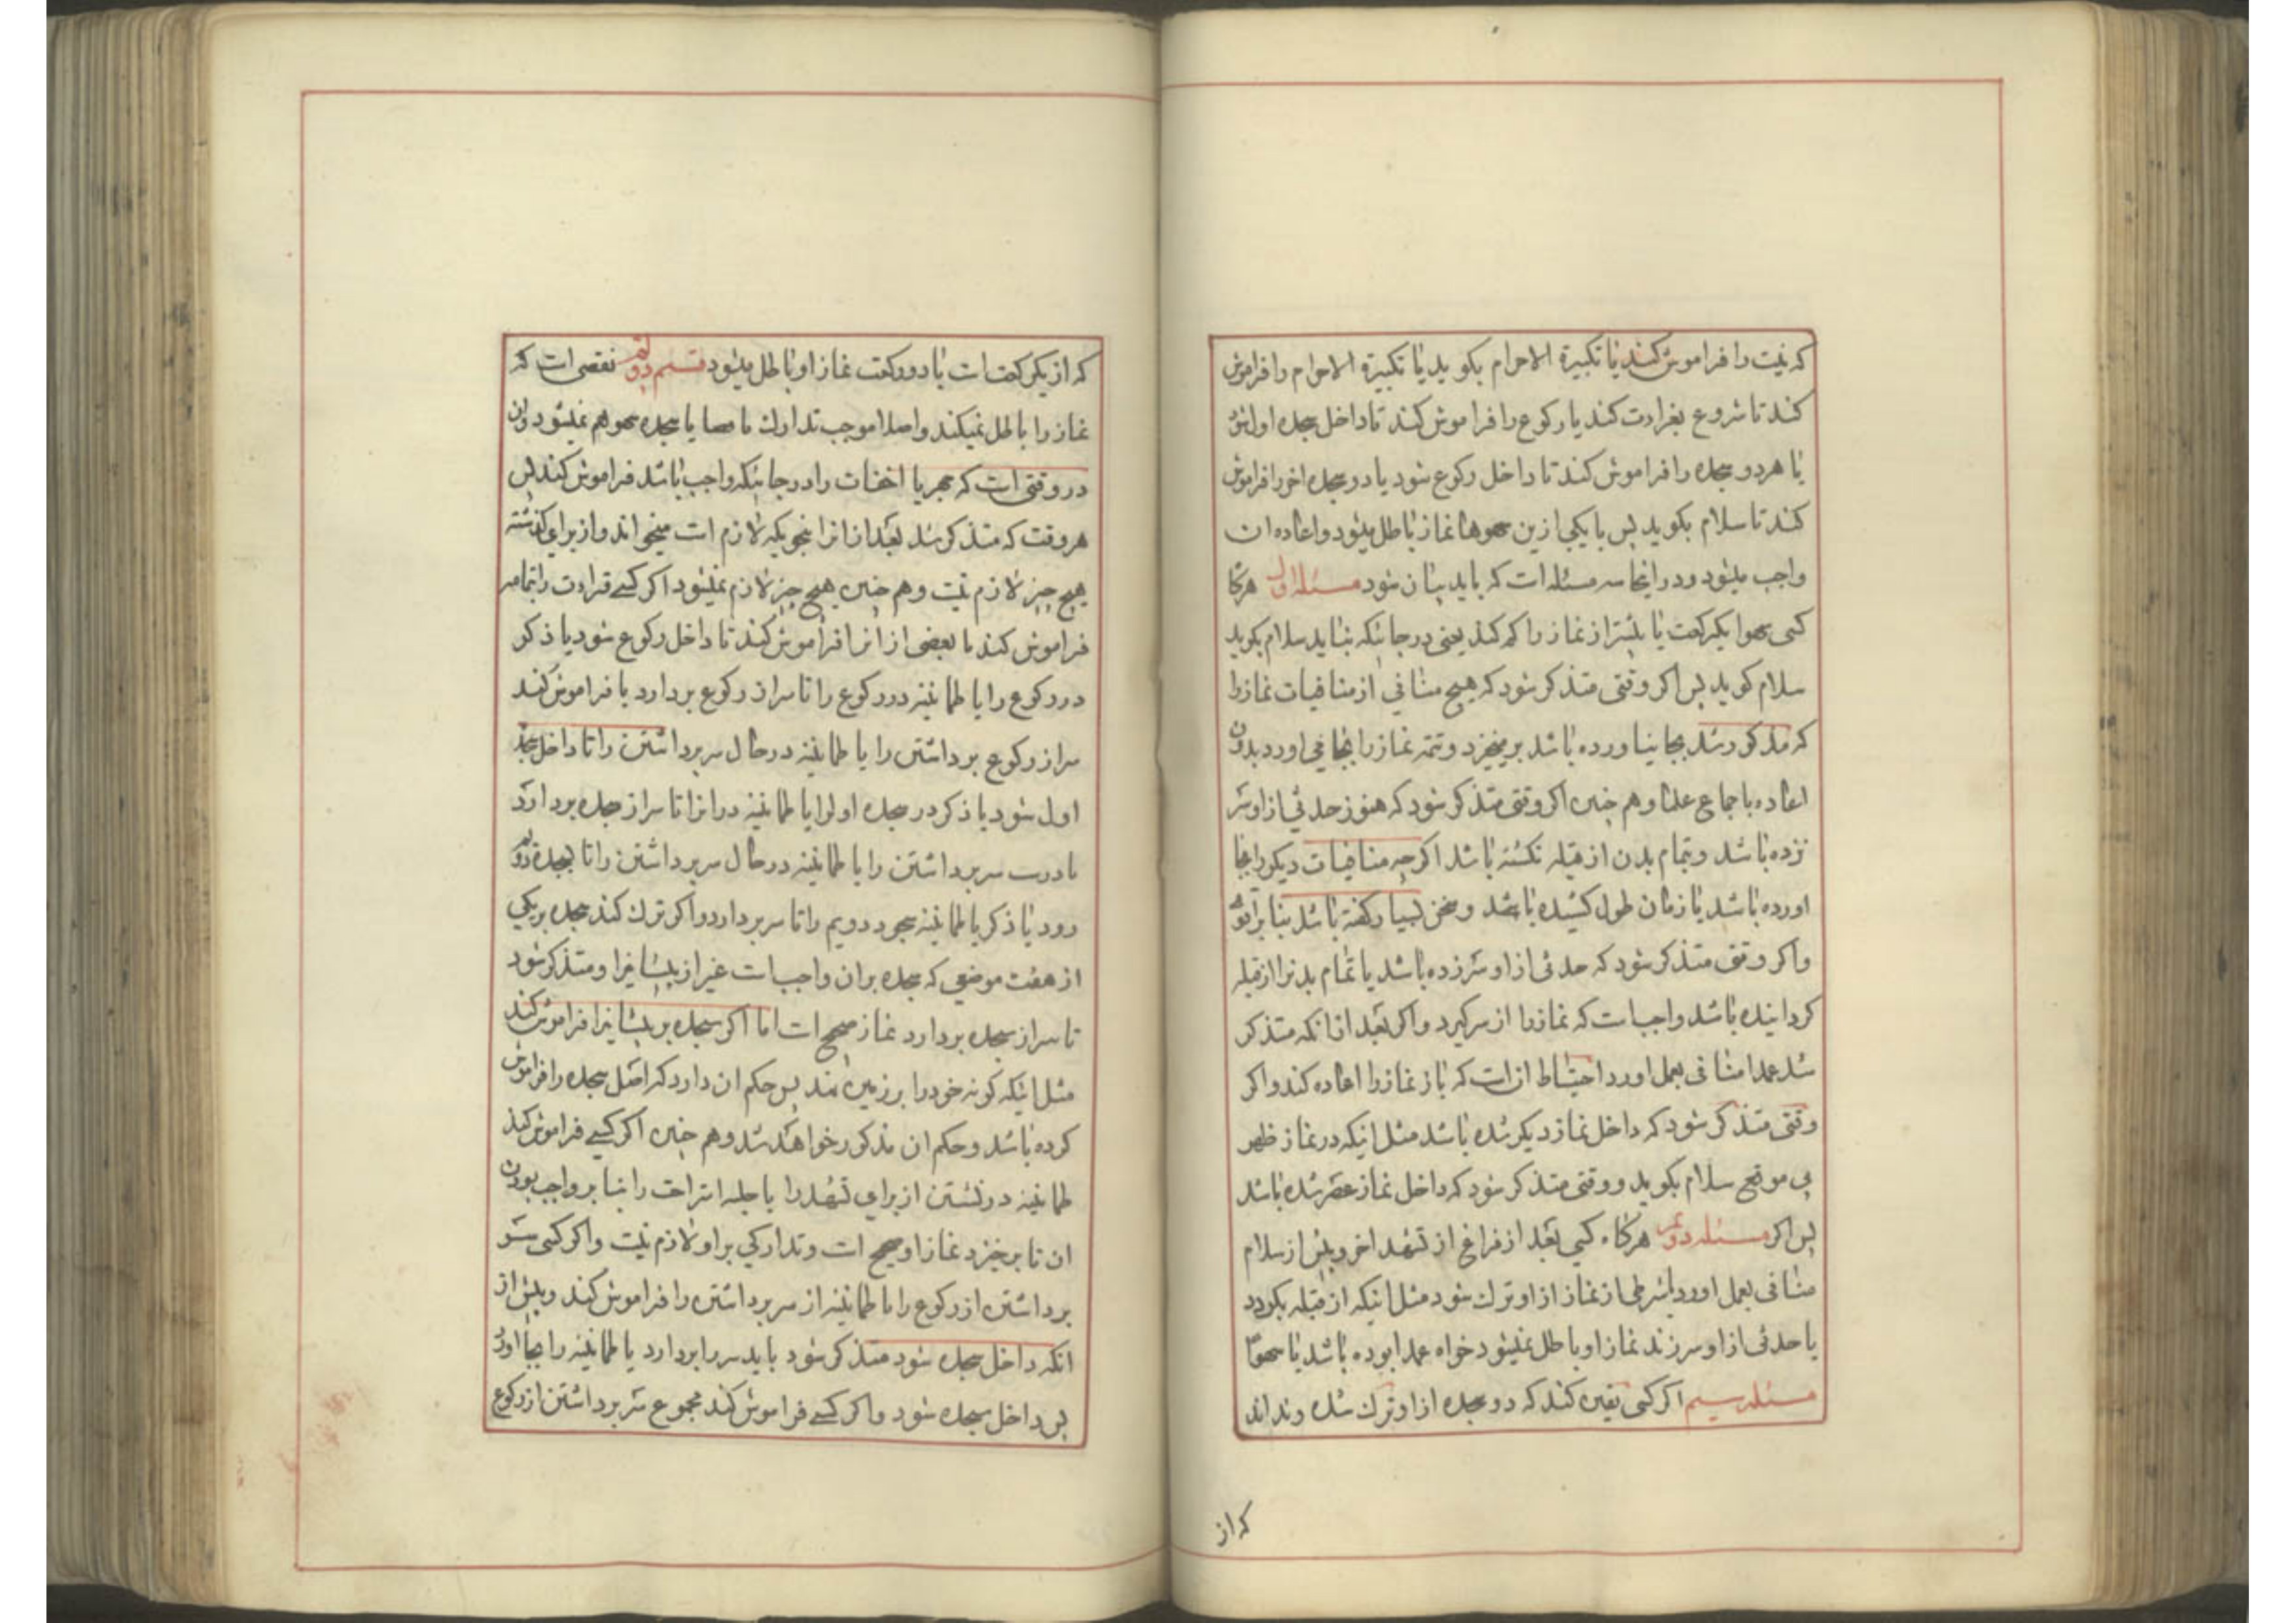 که نیت را فراموش کند یا تکبیرة الاحرام بکوید یا تکبیرة الاحرام را فراموش
کند تا شروع بقراءت کند یا رکوع را فراموش کند تا داخل سجده اول شود
یا هر دو سجده را فراموش کند تا داخل رکوع شود یا دو سجده اخر را فراموش
کند تا سلام بکوید پس با یکی ازین سهوها نماز باطل میشود و اعاده ان
واجب میشود و در اینجا سه مسئله است که باید بیان شود مسئله اول هرکاه
کسی سهوا یکرکعت یا بیشتر از نماز را کم کند یعنی در جائیکه نباید سلام بکوید
سلام کوید پس اکر وقتی متذکر شود که هیچ منافی از منافیات نماز را
که مذکور شد بجا نیاورده باشد بر میخیزد و تتمه نماز را بجا می اورد بدون
اعاده باجماع علما و هم چنین اکر وقتی متذکر شود که هنوز حدثی از او سر
نزده باشد و تمام بدن از قبله نکشته باشد اکرچه منافیات دیکر را بجا
اورده باشد یا زمان طول کشیده باشد و سخن بسیار کفته باشد بنا بر اقوی
و اکر وقتی متذکر شود که حدثی از او سر زده باشد یا تمام بدنرا از قبله
کردانیده باشد واجب است که نماز را از سر کیرد و اکر بعد از انکه متذکر
شد عمدا منافی بعمل اورد احتیاط ان است که باز نماز را اعاده کند و اکر
وقتی متذکر شود که داخل نماز دیکر شده باشد مثل اینکه در نماز ظهر
بی موقع سلام بکوید و وقتی متذکر شود که داخل نماز عصر شده باشد
پس اکر مسئله دویم هرکاه کسی بعد از فراغ از تشهد اخر و پیش از سلام
منافی بعمل اورد یا شرطی از نماز از او ترک شود مثل اینکه از قبله بکردد
یا حدثی از او سر زند نماز او باطل نمیشود خواه عمدا بوده باشد یا سهوا
مسئله سیم اکر کسی یقین کند که دو سجده از او ترک شده و نداند
که از
که از یکرکعت است یا دو رکعت نماز او باطل میشود قسم دویم نقصی است که
نماز را باطل نمیکند و اصلا موجب تدارک یا قضا یا سجده سهو هم نمیشود و ان
در وقتی است که جهر یا اخفات را در جائیکه واجب باشد فراموش کند پس
هر وقت که متذکر شد بعد از ان انرا بنحویکه لازم است میخواند و از برای کذشته
هیچ چیز لازم نیست و هم چنین هیچ چیز لازم نمیشود اکر کسی قراءت را بتمامه
فراموش کند یا بعضی از انرا فراموش کند تا داخل رکوع شود یا ذکر
در رکوع را یا طمانینه در رکوع را تا سر از رکوع بردارد یا فراموش کند
سر از رکوع برداشتن را یا طمانینه در حال سر برداشتن را تا داخل سجده
اول شود یا ذکر در سجده اول را یا طمانینه در انرا تا سر از سجده بردارد
یا درست سر برداشتن را یا طمانینه در حال سر برداشتن را تا بسجده دویم
رود یا ذکر یا طمانینه سجود دویم را تا سر بردارد و اکر ترک کند سجده بر یکی
از هفت موضعی که سجده بر ان واجب است غیر از پیشانی را و متذکر شود
تا سر از سجده بردارد نماز صحیح است اما اکر سجده بر پیشانیرا فراموش کند
مثل اینکه کونه خود را بر زمین نهد پس حکم ان دارد که اصل سجده را فراموش
کرده باشد و حکم ان مذکور خواهد شد و هم چنین اکر کسی فراموش کند
طمانینه در نشستن از برای تشهد را یا جلسه استراحت را بنا بر واجب بودن
ان تا برخیزد نماز او صحیح است و تدارکی بر او لازم نیست و اکر کسی سر
برداشتن از رکوع را یا طمانینه از سر برداشتن را فراموش کند و پیش از
انکه داخل سجده شود متذکر شود باید سر را بردارد یا طمانینه را بجا اورد
پس داخل سجده شود و اکر کسی فراموش کند مجموع سر برداشتن از رکوع